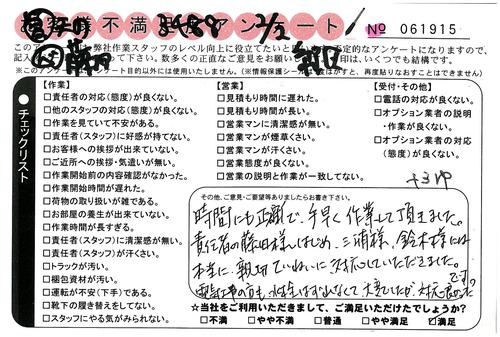 お客様不満足度アンケート
No 061915
このアンケートは弊社作業スタッフのレベル向上に役立てたいと
否定的なアンケートになりますので、
数多くの正直なご意見をお願い
印は、いくつでも結構です。
※このアンケートは目的以外には使用いたしません。(※情報保護シールは一度はがすと、再度貼りなおすことができません。)
●チェックリスト
【作業】
□責任者の対応(態度)が良くない。
□他のスタッフの対応(態度)が良くない。
□作業を見ていて不安がある。
□責任者(スタッフ)に好感が持てない。
□お客様への挨拶が出来ていない。
□ご近所への挨拶・気遣いが無い。
□作業開始前の内容確認がなかった。
□作業開始時間が遅れた。
□荷物の取り扱いが雑である。
□お部屋の養生が出来ていない。
□作業時間が長すぎる。
□責任者(スタッフ)に清潔感が無い。
□責任者(スタッフ)が汗くさい。
□トラックが汚い。
□梱包資材が汚い。
□運転が不安(下手)である。
□靴下の履き替えをしてない。
□スタッフにやる気がみられない。
【営業】
□見積もり時間に遅れた。
□見積もり時間が長い。
□営業マンに清潔感が無い。
□営業マンが煙草くさい。
□営業マンが汗くさい。
□営業態度が良くない。
□営業の説明と作業が一致してない。
【受付・その他】
□電話の対応が良くない。
□オプション業者の説明
・作業が良くない。
□オプション業者の対応
(態度)が良くない。
その他、ご意見・ご要望等ありましたらお書き下さい。
時間にも正確で、手早く作業して頂きました。
責任者の藤田様はじめ、三浦様、鈴木様には
本当に親切ていねいに対応していただきました。
☆当社をご利用いただきまして、ご満足いただけたでしょうか?
□不満 □やや不満 □普通 □やや満足 ☑満足